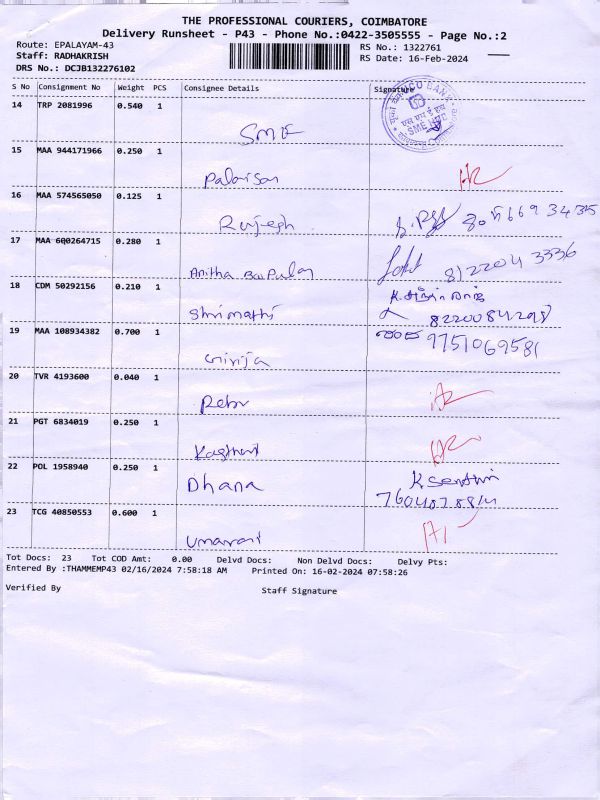 THE PROFESSIONAL COURIERS, COIMBATORE
Delivery Runsheet - P43 - Phone No.:0422-3505555 - Page No.:2
Route: EPALAYAM-43 RS No.: 1322761
Staff: RADHAKRISH RS Date: 16-Feb-2024
DRS No.: DCJB132276102
S No Consignment No Weight PCS Consignee Details Signature
14 TRP 2081996 0.540 1 SME
15 MAA 944171966 0.250 1
16 MAA 574565050 0.125 1 Rajesh
17 MAA 600264715 0.280 1 Anitha 8122043336
18 CDM 50292156 0.210 1 Shrimathi 8220084298
19 MAA 108934382 0.700 1 Girija 9751069581
20 TVR 4193600 0.040 1
21 PGT 6834019 0.250 1
22 POL 1958940 0.250 1 Dhana
23 TCG 40850553 0.600 1
Tot Docs: 23 Tot COD Amt: 0.00 Delvd Docs: Non Delvd Docs: Delvy Pts:
Entered By :THAMMEMP43 02/16/2024 7:58:18 AM Printed On: 16-02-2024 07:58:26
Verified By Staff Signature